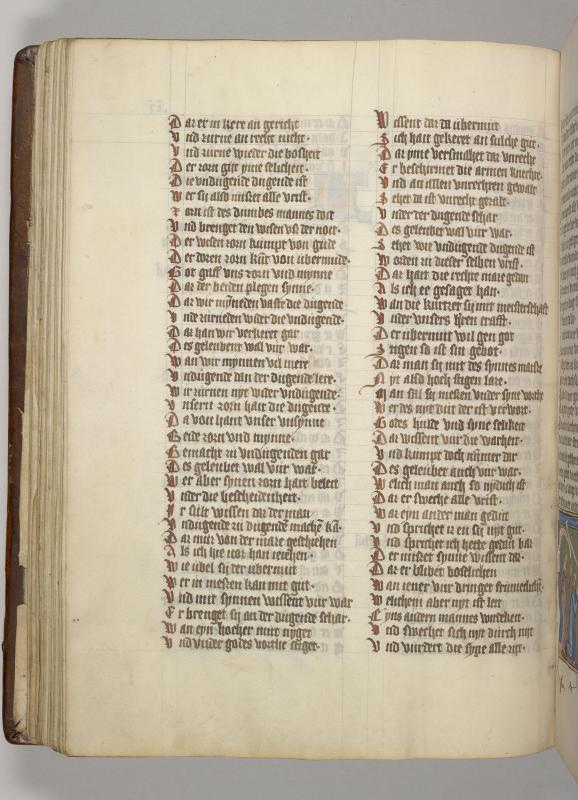 Dar er in kere an gericht
Vnd zurne an recht nicht
Vnd zurne wieder die bosheit
Der zorn git yme selicheit
Die vndugende dugende ist
Wer sy also nutzet alle vrist
Zorn ist des dumbes mannes doit
Vnd brenget den wisen vs der noit
Der wisen zorn kumpt von gude
Der doren zorn kumt von ubermude
Got gaff vns zorn vnd mynne
Dar der beiden plegen synne
Dar wir mynneden vaste die dugende
Vnde zurneden weder die vndugende
Dar han wir verkeret gar
Des geleubent wal vur war
Wan wir mynnen vil mere
Vndugende dan der dugende lere
Wir zurnen nyt weder vndugende
Vnsern zorn hait die dugende
Da von hant vnser vnsynne
Beide zorn vnd mynne
Gemacht zu vndugenden gar
Des geleubet wal vur war
Wer aber synen zorn hait beleit
Vnder die bescheidenheit
Ir sult wissen dar der man
Vndugende zu dugende machen kan
Dar mir von der mare geschiehen
Als ich hie vor han iehen
Wie ubel sy der ubermut
Wer in messen kan mit gut
Vnd mit synnen wissent vur war
Er brenget sy an der dugende schar
Wan eyn hocher mut nyget
Vnd vnder godes vorthe stiget
Wissent dar da ubermut
Sich hait gekeret an sulche gut
Dar yme versmahet dar vnrecht
Er beschirmet die armen knechte
Vnd an allen vnrechten gewalt
Sehet da ist vnrecht gezalt
Vnder der dugende schar
Des geleubet wal vur war
Sehet wie vndugende dugende ist
Worden zu dieser selben vrist
Dar hait die rechte mare gedan
Als ich ee gesaget han
Wan die kurtzet sy mit meisterschaft
Vnder vnsers heren crafft
Der ubermut wil gen got
Stigen so ist sin gebot
Dar man sy mit des synnes maisse
Nyt also hoch stigen lare
Man sal sy messen vnder syne vorthe
Wer des nyt dut der ist verwort
Godes hulde vnd syne selikeit
Dar wissent vur die warheit
Vnd kumpt doch nunter dar
Des geleubet auch vur war
Welich man auch so nydich ist
Dar er swechet alle vrist
War eyn ander man gedut
Vnd sprichet it en sij nyt gut
Vnd sprichet ich hette gedan bas
Der mirdet synne wissent dar
Dar er blibet boslichen
Wan iener vur dringet sunnerlich
Welichem aber nyt ist leit
Eyns andern mannes wirdekeit
Vnd swechet sich nyt durch nyt
Vnd vurdert die syne alle zyt